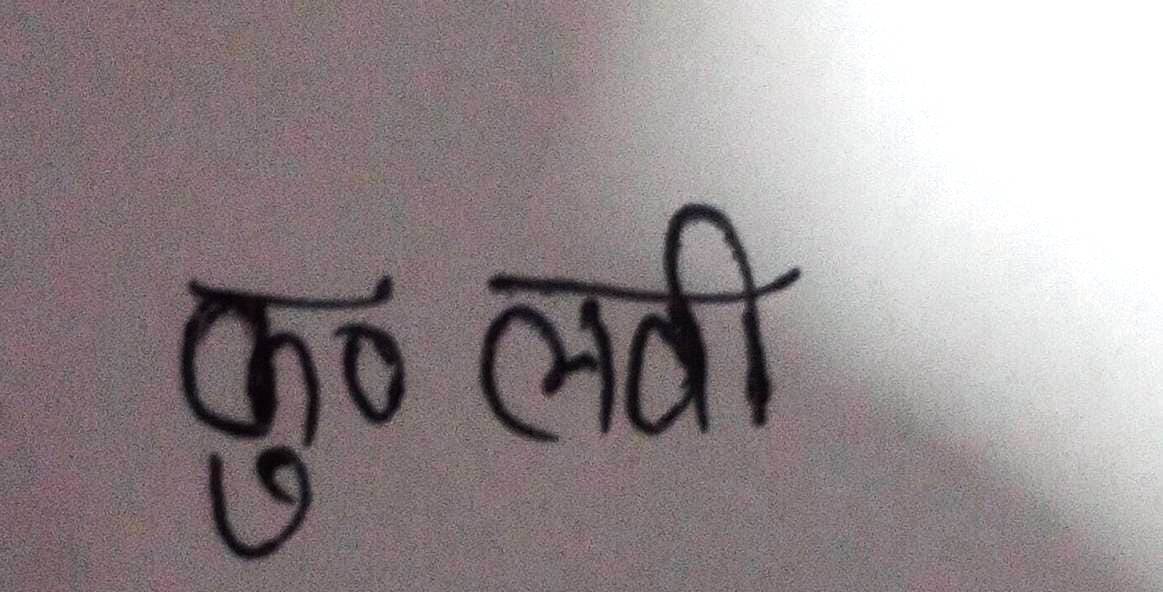 कु० लवी